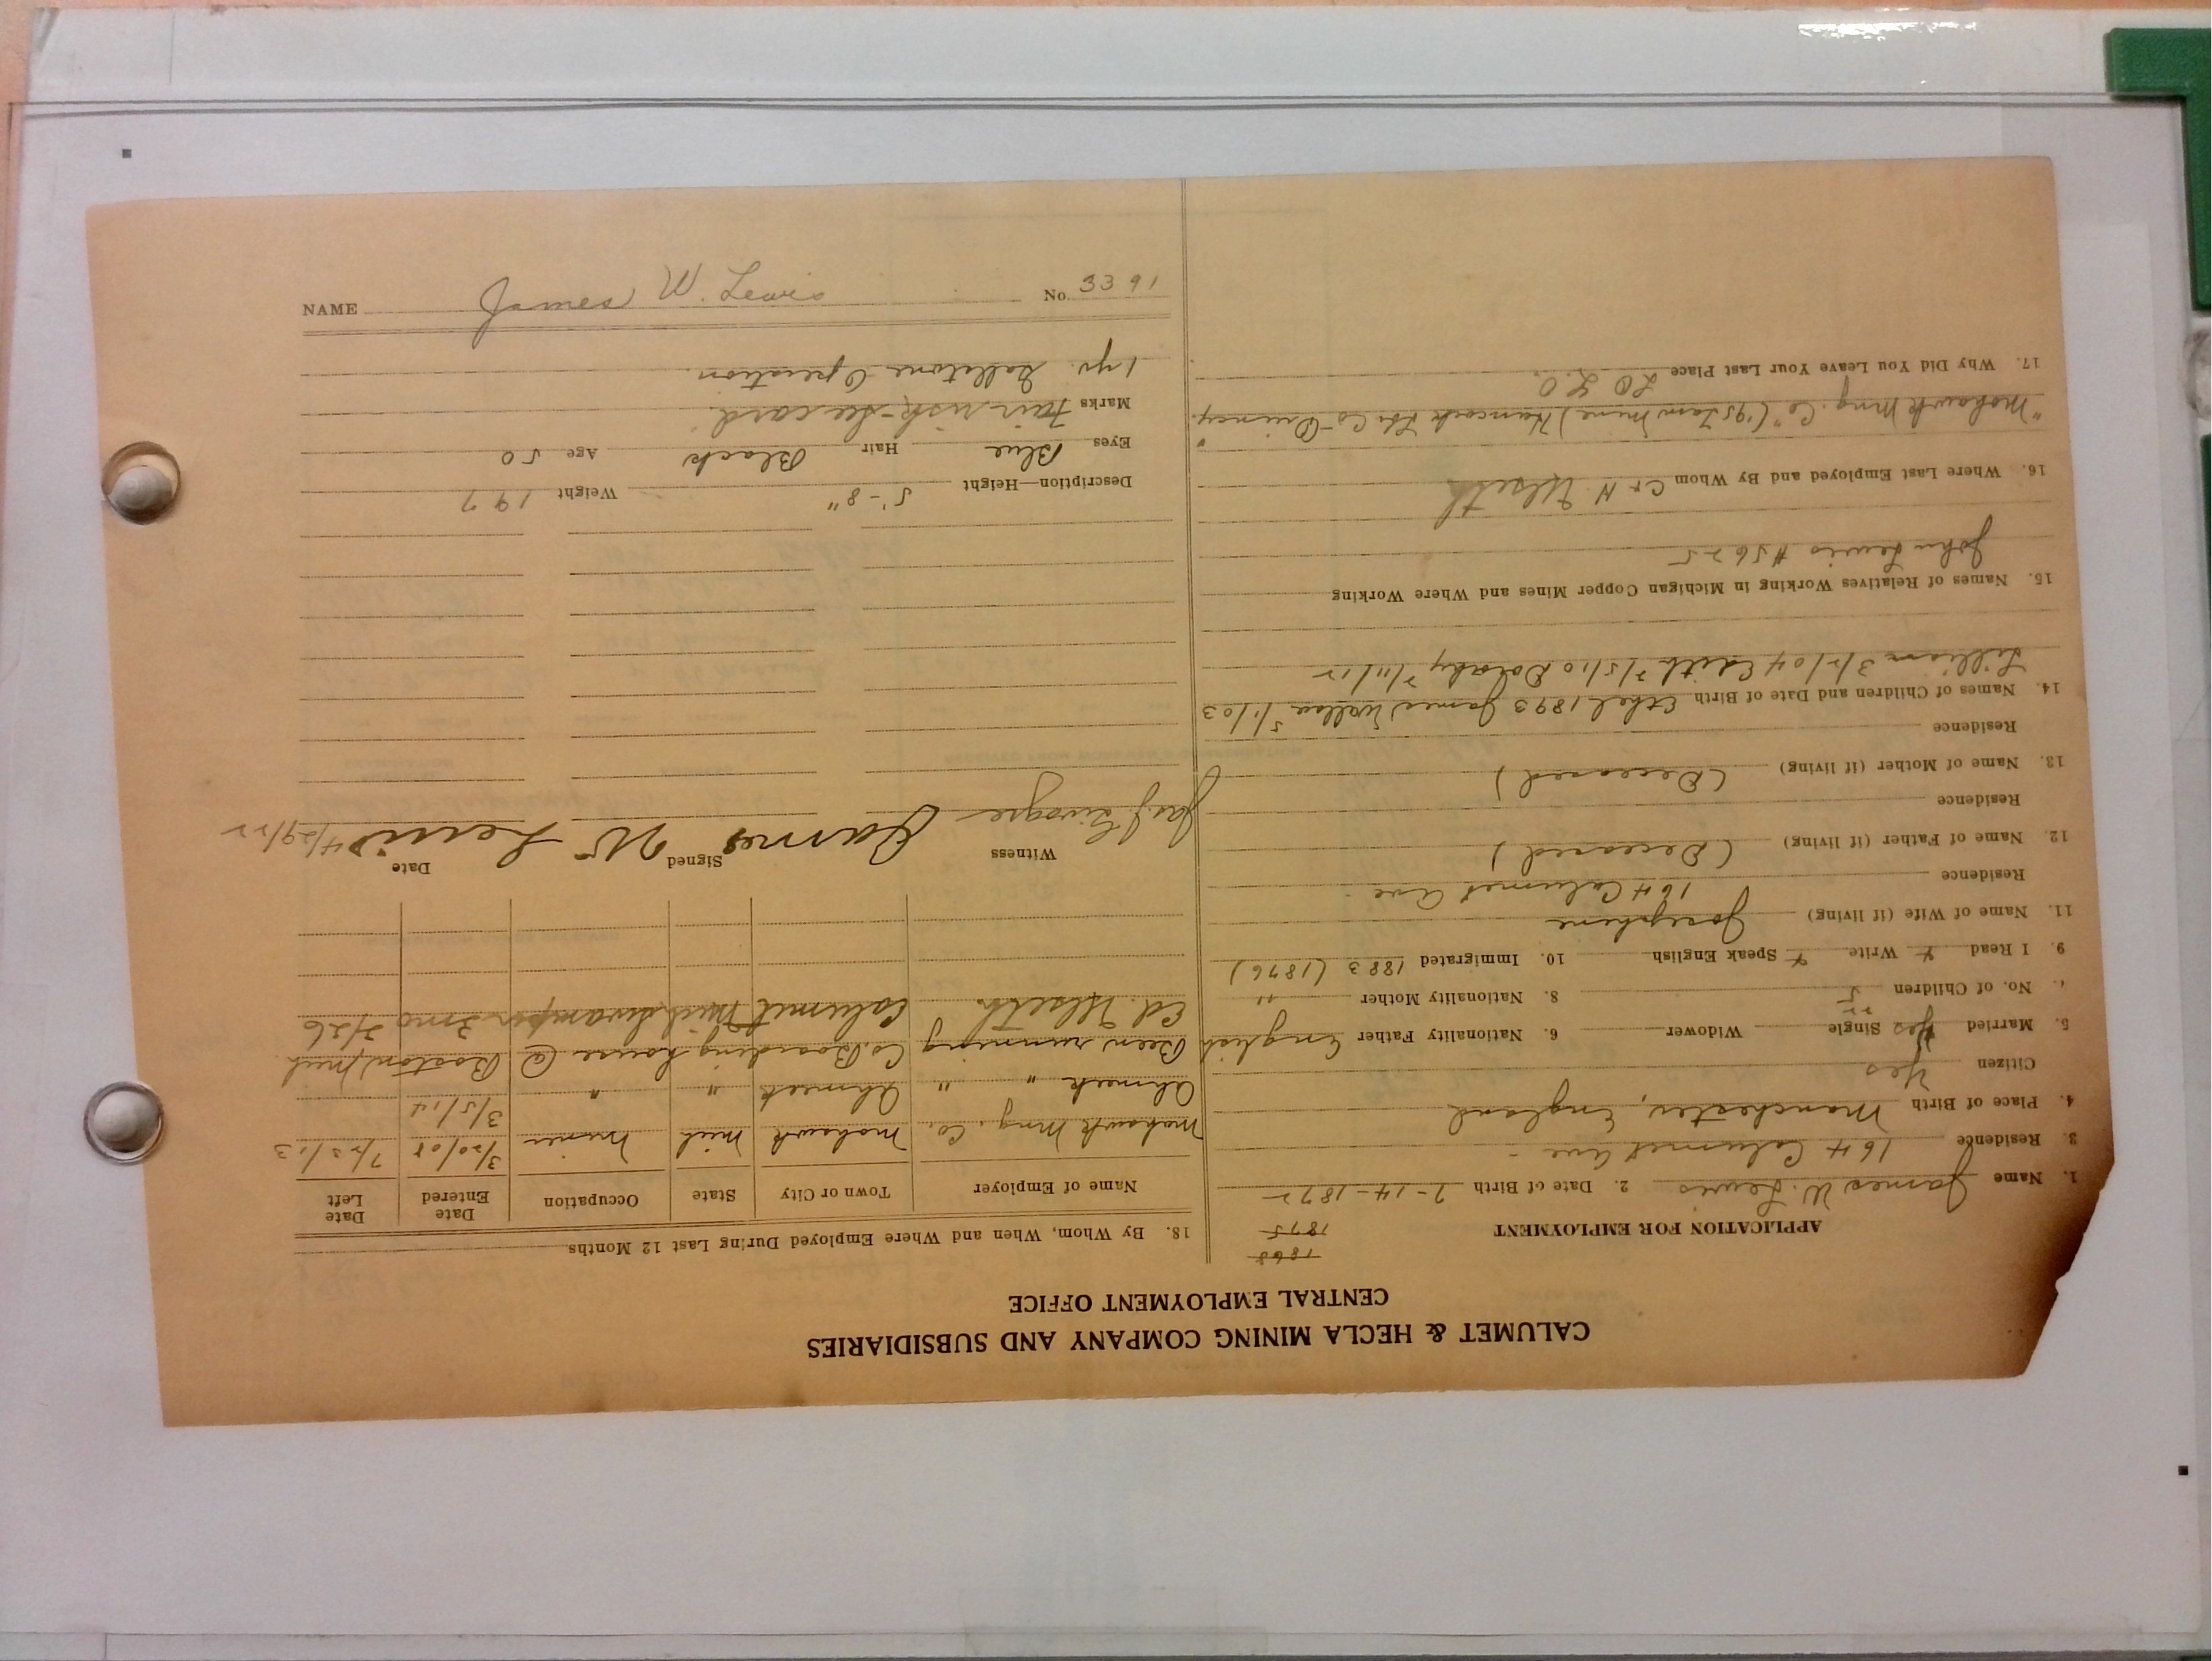 CALUMET & HECLA MINING COMPANY AND SUBSIDIARIES
CENTRAL EMPLOYMENT OFFICE
APPLICATION FOR EMPLOYMENT
1868
1875
1. Name James W. Lewis 2. Date of Birth 7-14-1872
3. Residence 164 Calumet Ave
4. Place of Birth Manchester, England
Citizen Yes
5. Married Yes Single Widower 6. Nationality Father English
No. of Children 5 8. Nationality Mother "
9. I Read Write Speak English 10. Immigrated 1883 (1876)
11. Name of Wife (if living) Josephine
Residence 164 Calumet Ave
12. Name of Father (if living) (Deceased)
Residence
13. Name of Mother (if living) (Deceased)
Residence
14. Names of Children and Date of Birth Ethel 1893 James Wallace 5/1/03
Lillian 3/2/04 Edith 7/5/10 7/11/12
15. Names of Relatives Working in Michigan Copper Mines and Where Working
John Lewis #5625
16. Where Last Employed and By Whom C & H
"Mohawk Mng. Co" ('95 Tam. Mine) Hancock Quincy.
17. Why Did You Leave Your Last Place
18. By Whom, When and Where Employed During Last 12 Months
Name of Employer Town or City State Occupation Date Entered Date Left
Mohawk Mng. Co. Mohawk Mich Miner 3/20/08 7/23/13
Ahmeek " " Ahmeek " " 3/5/14
Been running Co. Boarding house @ Boston, Mich.
Ed. Calumet Mich Swamper 3 mo 2/26
Witness Signed James W Lewis Date 4/29/22
Description—Height 5'-8" Weight 197
Eyes Blue Hair Black Age 50
Marks Fair risk - See card.
1 yr. Gallstone Operation.
NAME James W. Lewis No. 3391